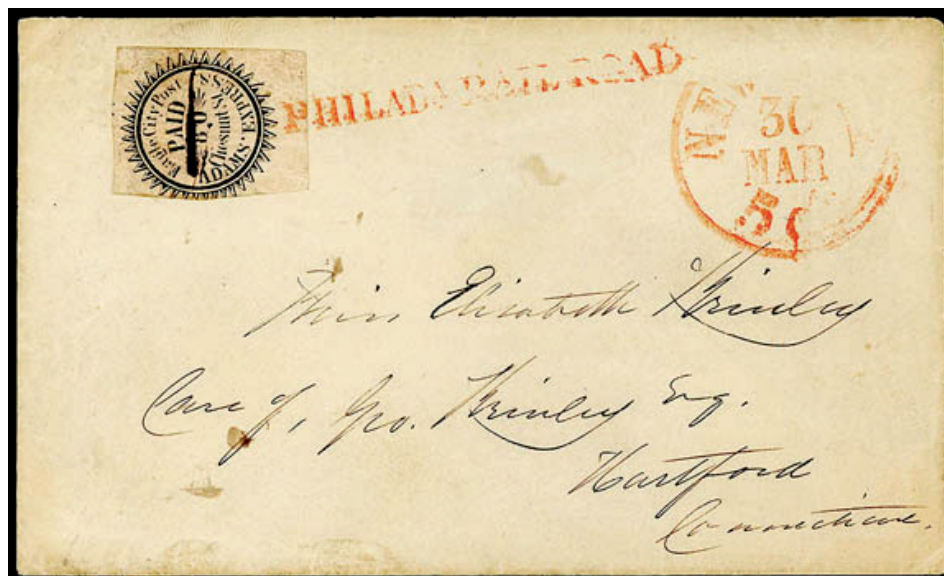 Eagle City Post
PAID
80
Johnson St
ADAMS' EXPRESS.
PHILADA RAIL ROAD
NE
30
MAR
5
Miss Elizabeth Brinley
Care of, Geo. Brinley Esq.
Hartford
Connecticut.